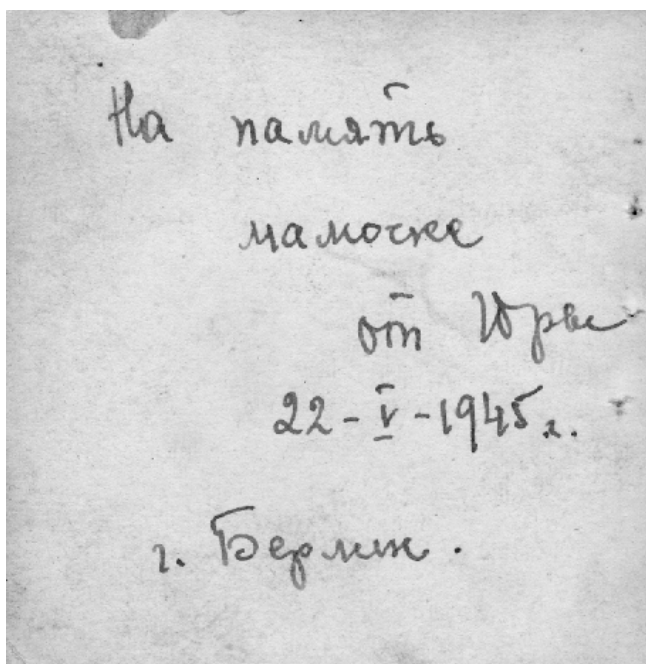 На память
мамочке
от Юры
22-V-1945 г.
г. Берлин.